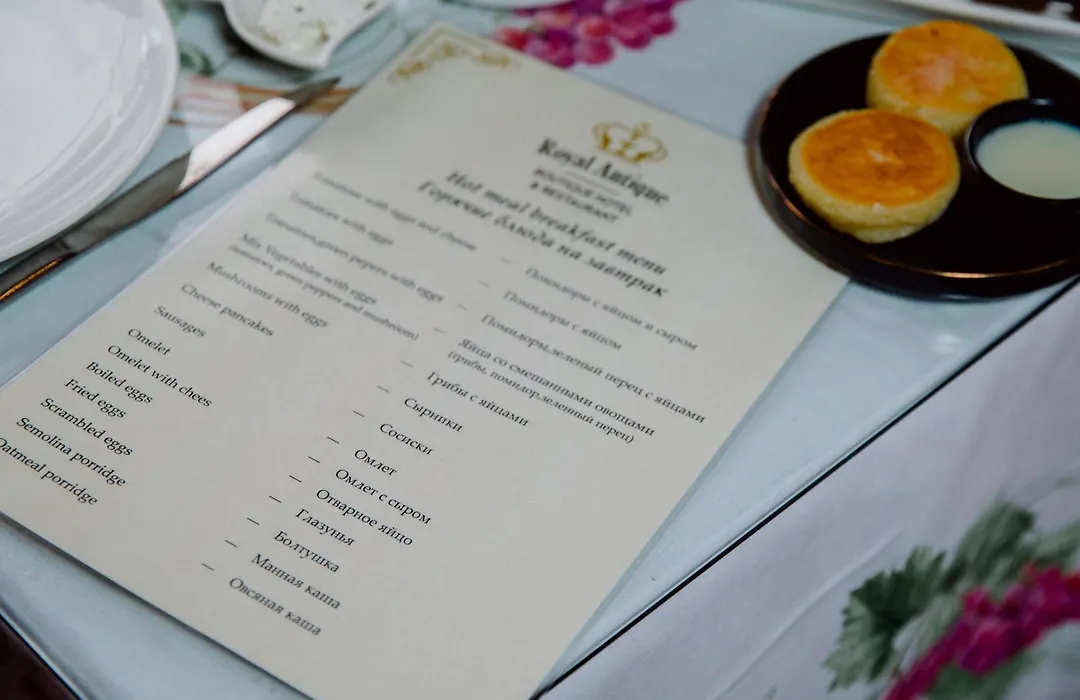 Royal Antique
BOUTIQUE HOTEL
& RESTAURANT
Hot meal breakfast menu
Горячие блюда на завтрак
Tomatoes with eggs and cheese – Помидоры с яйцом и сыром
Tomatoes with eggs – Помидоры с яйцом
Tomatoes,green pepers with eggs – Помидоры,зеленый перец с яйцами
Mix Vegetables with eggs – Яйца со смешанными овощами
(tomatoes, green peppers and mushroom) (грибы, помидор,зеленный перец)
Mushrooms with eggs – Грибы с яйцами
Cheese pancakes – Сырники
Sausages – Сосиски
Omelet – Омлет
Omelet with chees – Омлет с сыром
Boiled eggs – Отварное яйцо
Fried eggs – Глазунья
Scrambled eggs – Болтушка
Semolina porridge – Манная каша
Oatmeal porridge – Овсяная каша